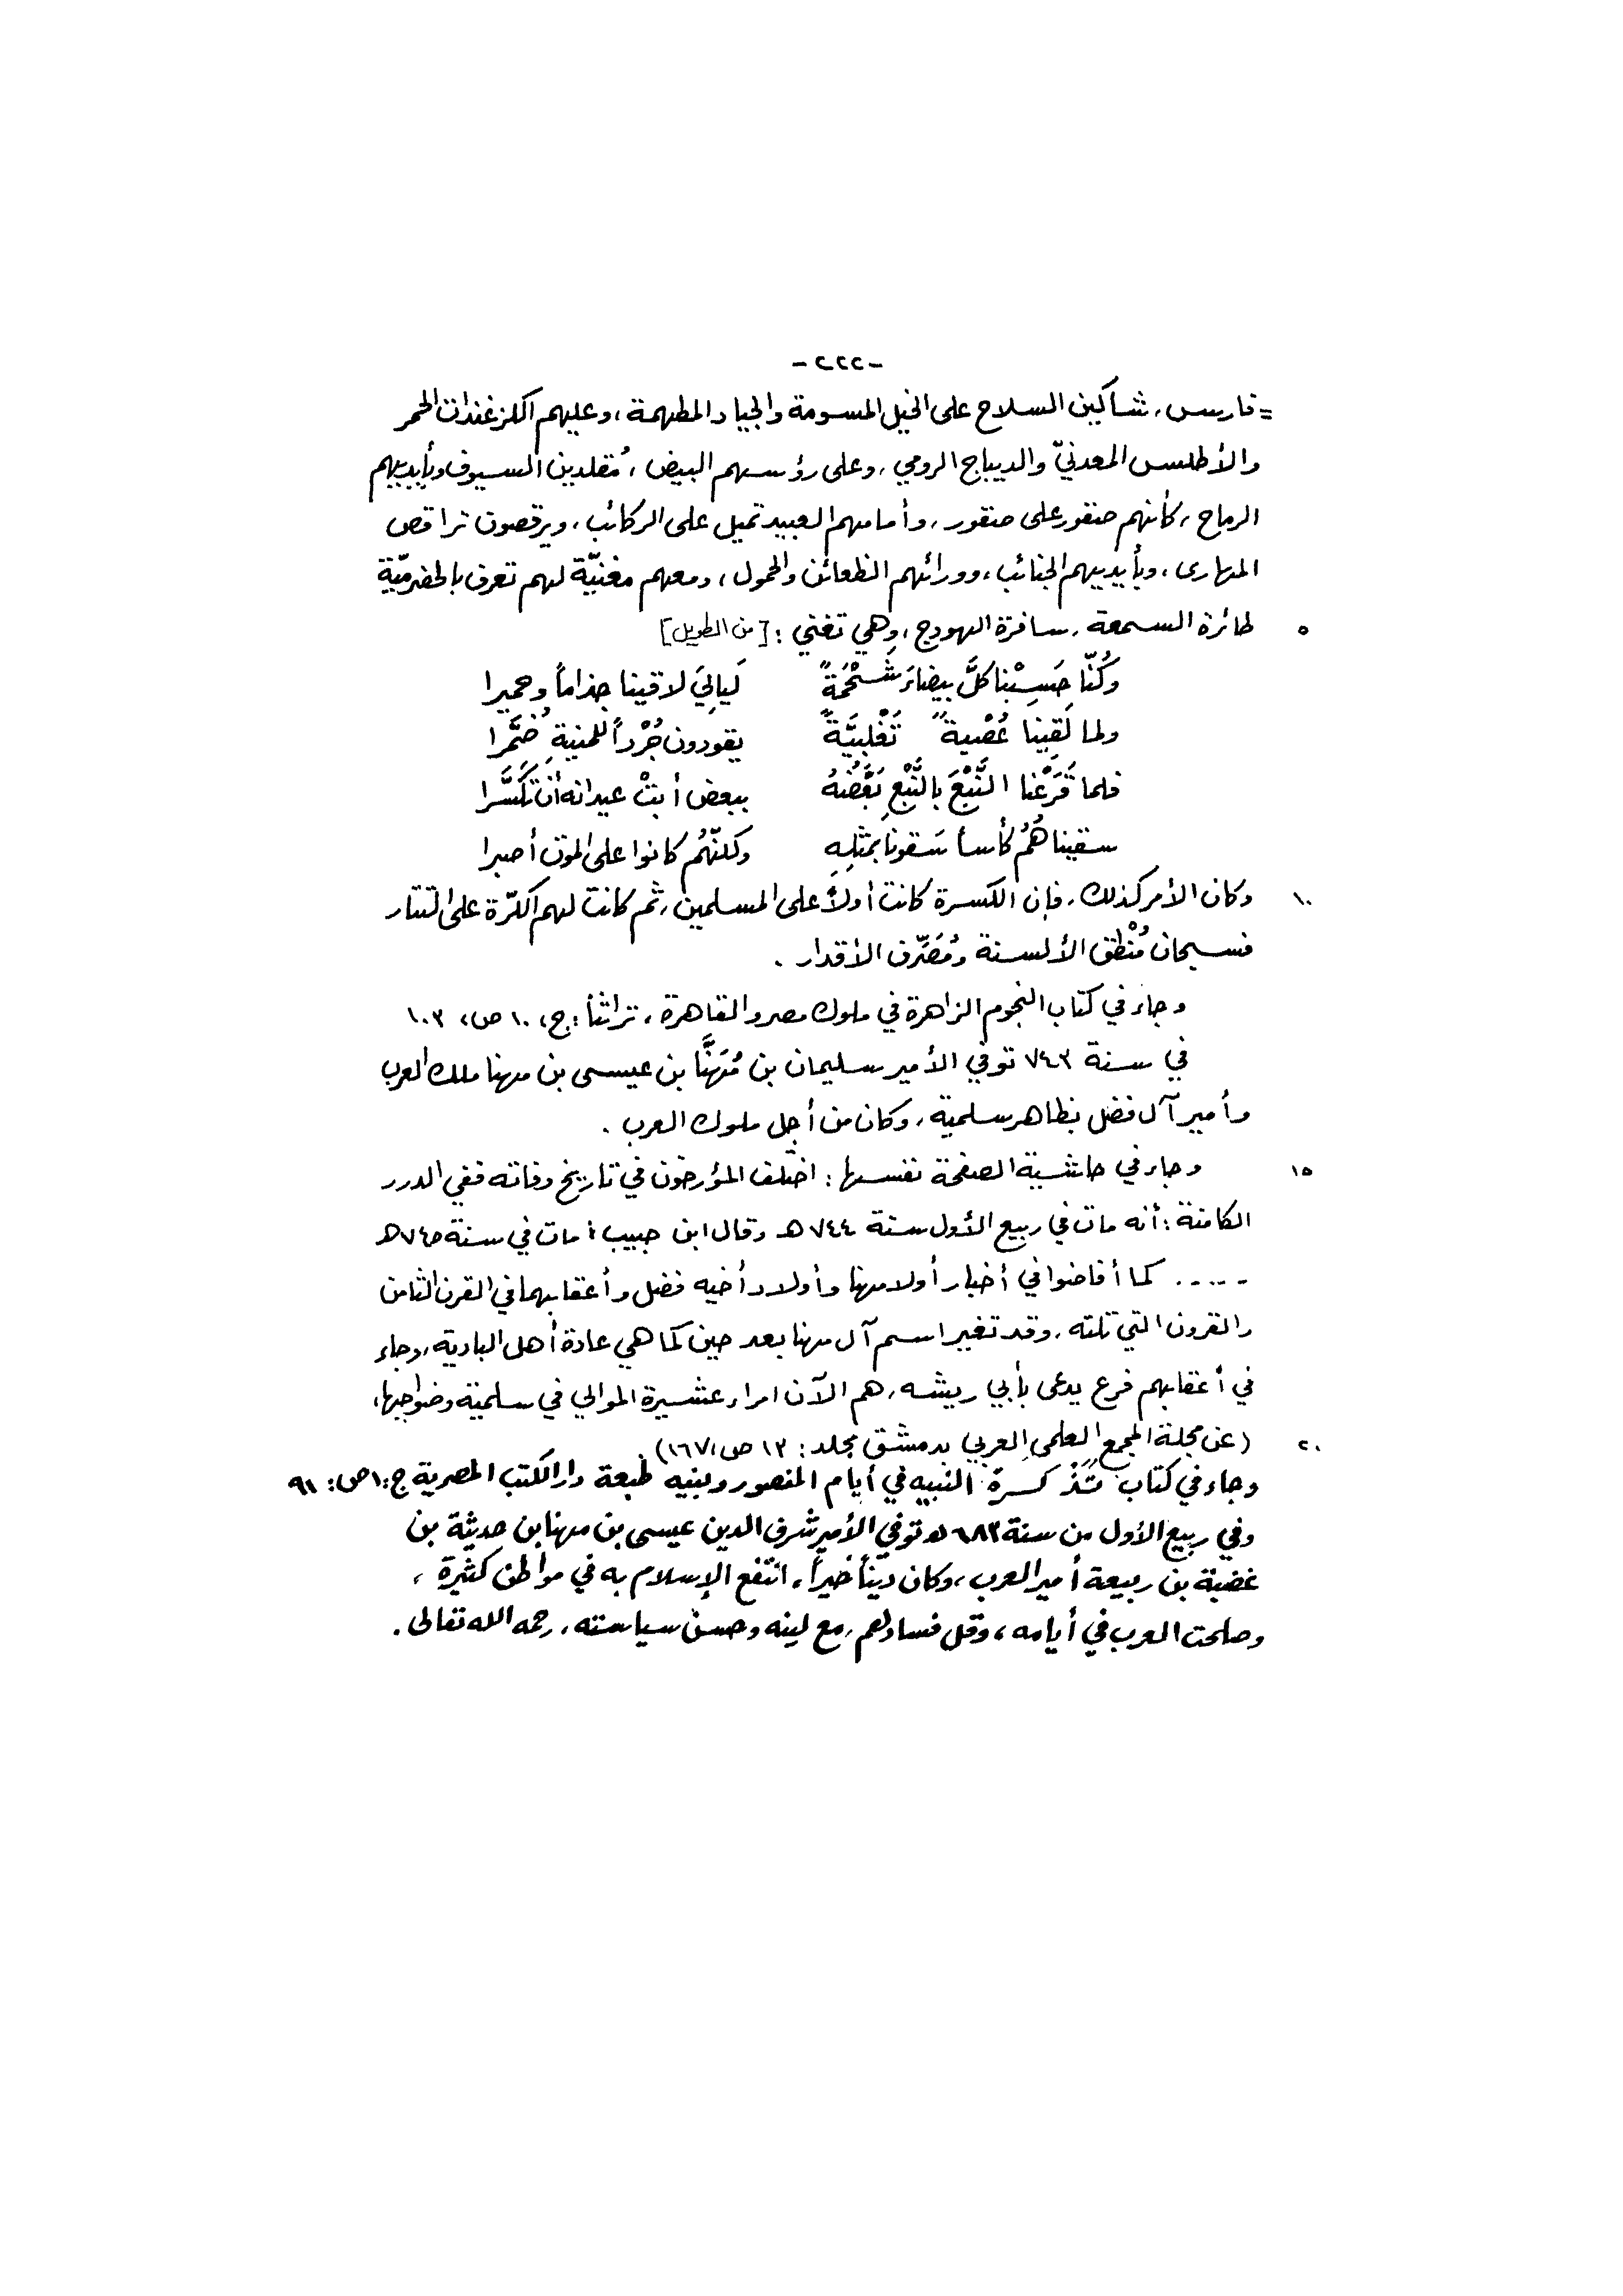 -٢٢٢-
= فارس، شاكين السلاح على الخيل المسومة والجياد المطهمة، وعليهم الكزغندات الحمر
والأطلس المعدنيّ والديباج الرومي، وعلى رؤسهم البيض، مُقلدين السيوف وبأيديهم
الرماح، كأنهم صقور على صقور، وأمامهم العبيد تميل على الركائب، ويرقصون تراقص
المهارى، وبأيديهم الجنائب، وورائهم الظعائن والحمول، ومعهم مغنيّة لهم تعرف بالحضرميّة
٥ طائرة السمعة، سافرة الهودج، وهي تغني: [من الطويل]
وكُنّا حَسِبْنا كلَّ بيضاءَ شَحْمَةً لَيالِيَ لاقينا جذاماً وحميرا
ولما لَقِينا عُصْبةً تَغْلِبيَّةً يقودون جُرْداً للمنيةِ ضُمَّرا
فلما قَرَعْنا النَّبْعَ بالنَّبْعِ بَعْضَهُ ببعض أبتْ عيدانه أن تَكَسَّرا
سقيناهُمُ كأساً سَقونا بمثلِهِ ولكنّهُم كانوا على الموت أصبرا
١٠ وكان الأمر كذلك، فإن الكسرة كانت أولاً على المسلمين، ثم كانت لهم الكرّة على التتار
فسبحان مُنْطق الألسنة ومُصَرّف الأقدار .
وجاء في كتاب النجوم الزاهرة في ملوك مصر والقاهرة، تراثنا: ج، ١٠ ص، ١٠٣
في سنة ٧٤٣ توفي الأمير سليمان بن مُهَنَّا بن عيسى بن مهنا ملك العرب
وأمير آل فضل بظاهر سلمية، وكان من أجل ملوك العرب .
١٥ وجاء في حاشية الصفحة نفسها: اختلف المؤرخون في تاريخ وفاته ففي الدرر
الكامنة: أنه مات في ربيع الأول سنة ٧٤٤ هـ وقال ابن حبيب: مات في سنة ٧٤٥ هـ
..... كما أفاضوا في أخبار أولاد مهنا وأولاد أخيه فضل وأعقابهما في القرن الثامن
والقرون التي تلته، وقد تغير اسم آل مهنا بعد حين كما هي عادة أهل البادية، وجاء
في أعقابهم فرع يدعى بأبي ريشه، هم الآن امراء عشيرة الموالي في سلمية وضواحيها،
٢٠ (عن مجلة المجمع العلمي العربي بدمشق مجلد: ١٣ ص، ١٦٧)
وجاء في كتاب تَذْكِرة النبيه في أيام المنصور وبنيه طبعة دار الكتب المصرية ج: ١ ص: ٩١
وفي ربيع الأول من سنة ٦٨٣ هـ توفي الأمير شرف الدين عيسى بن مهنا بن حديثة بن
غضبة بن ربيعة أمير العرب، وكان ديّناً خيراً، انتفع الإسلام به في مواطن كثيرة،
وصلحت العرب في أيامه، وقل فسادهم، مع لينه وحسن سياسته، رحمه الله تعالى.